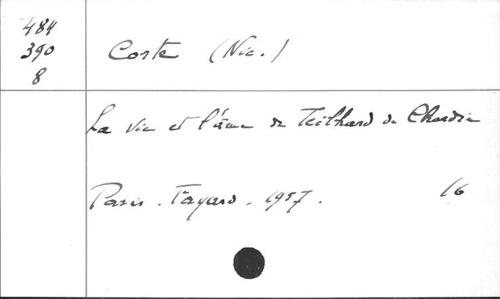 484
390
8
Corte (Nic.)
La vie et l'âme de Teilhard de Chardin
Paris. Fayard. 1957.
16